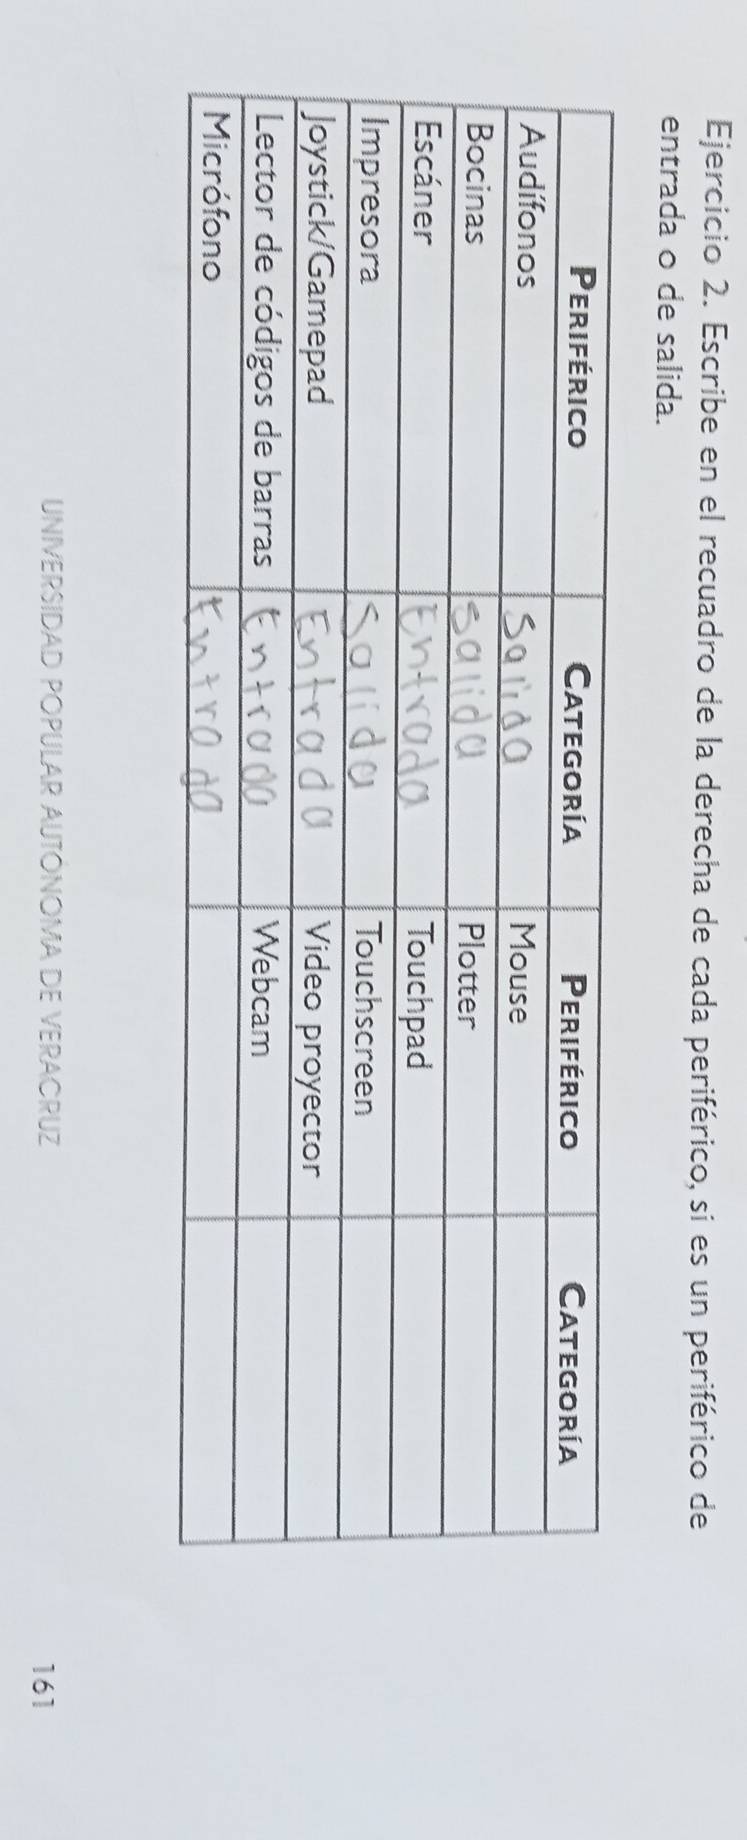 Ejercicio 2. Escribe en el recuadro de la derecha de cada periférico, si es un periférico de
entrada o de salida.
PERIFÉRICO CATEGORÍA PERIFÉRICO CATEGORÍA
Audífonos Salida Mouse
Bocinas Salida Plotter
Escáner Entrada Touchpad
Impresora Salida Touchscreen
Joystick/Gamepad Entrada Video proyector
Lector de códigos de barras Entrada Webcam
Micrófono Entrada
UNIVERSIDAD POPULAR AUTÓNOMA DE VERACRUZ
161